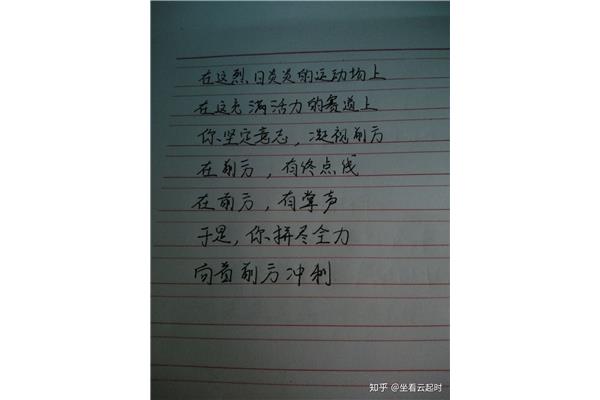 在这烈日炎炎的运动场上
在这充满活力的赛道上
你坚定意志，凝视前方
在前方，有终点线
在前方，有掌声
于是，你拼尽全力
向着前方冲刺
知乎 @坐看云起时